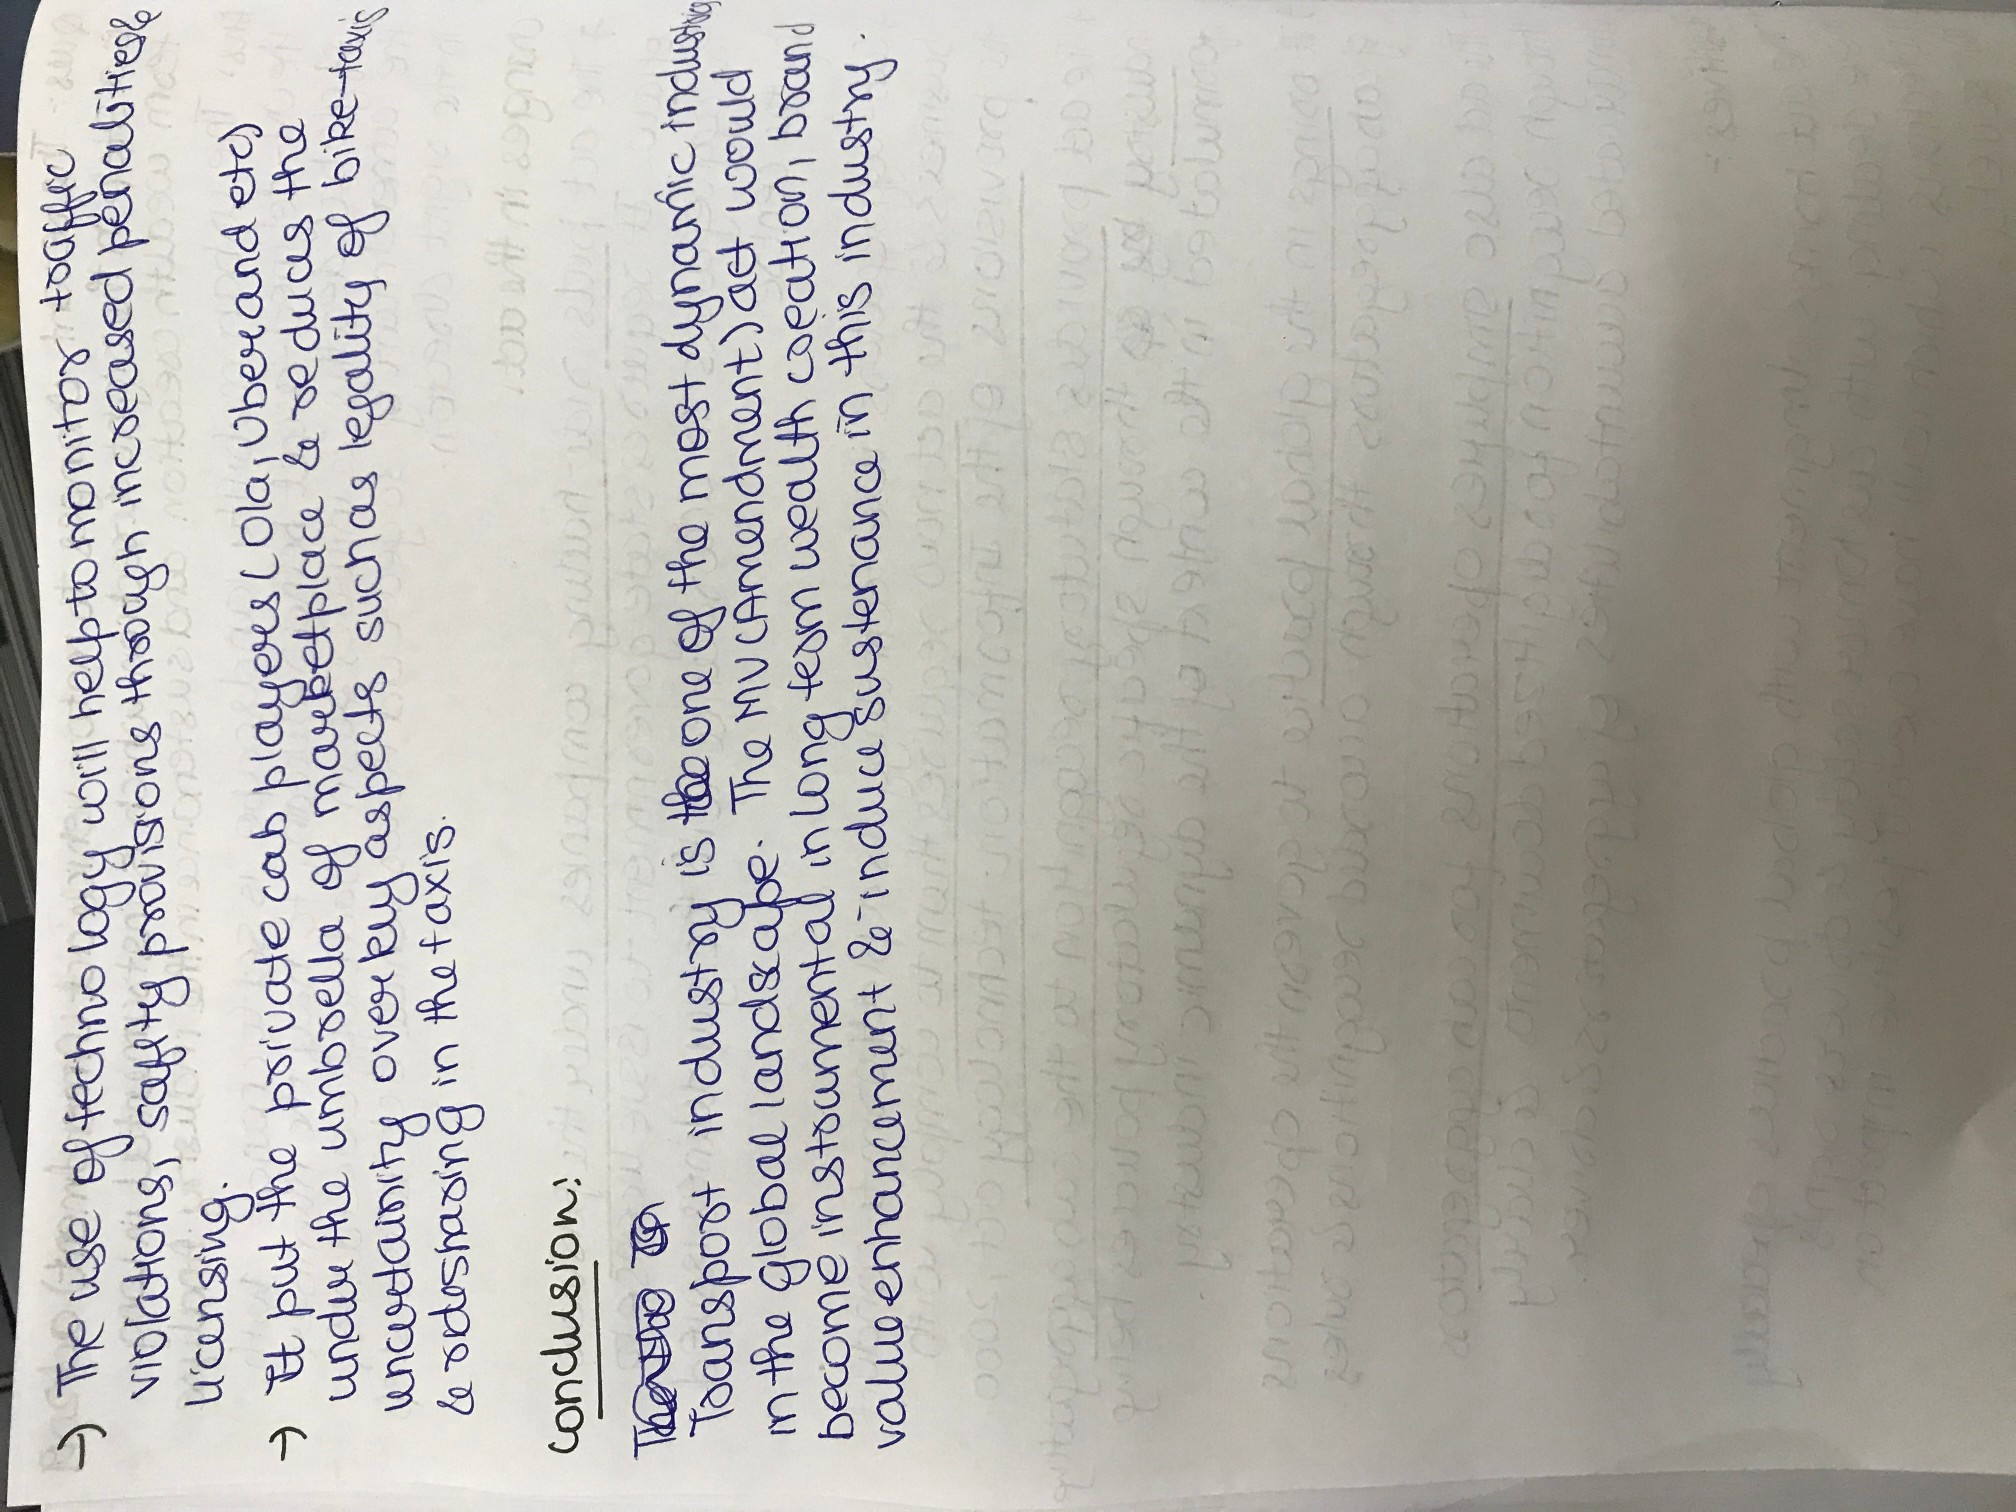 → The use of technology will help to monitor traffic
violations, safety provisions through increased penalities &
licensing.
→ It put the private cab players (Ola, Uber and etc)
under the umbrella of marketplace & reduces the
uncertainity over key aspects such as legality of bike-taxis
& ridesharing in the taxis.
Conclusion:
Transport industry is one of the most dynamic industry
in the global landscape. The MV (Amendment) act would
become instrumental in long term wealth creation, brand
value enhancement & induce sustenance in this industry.